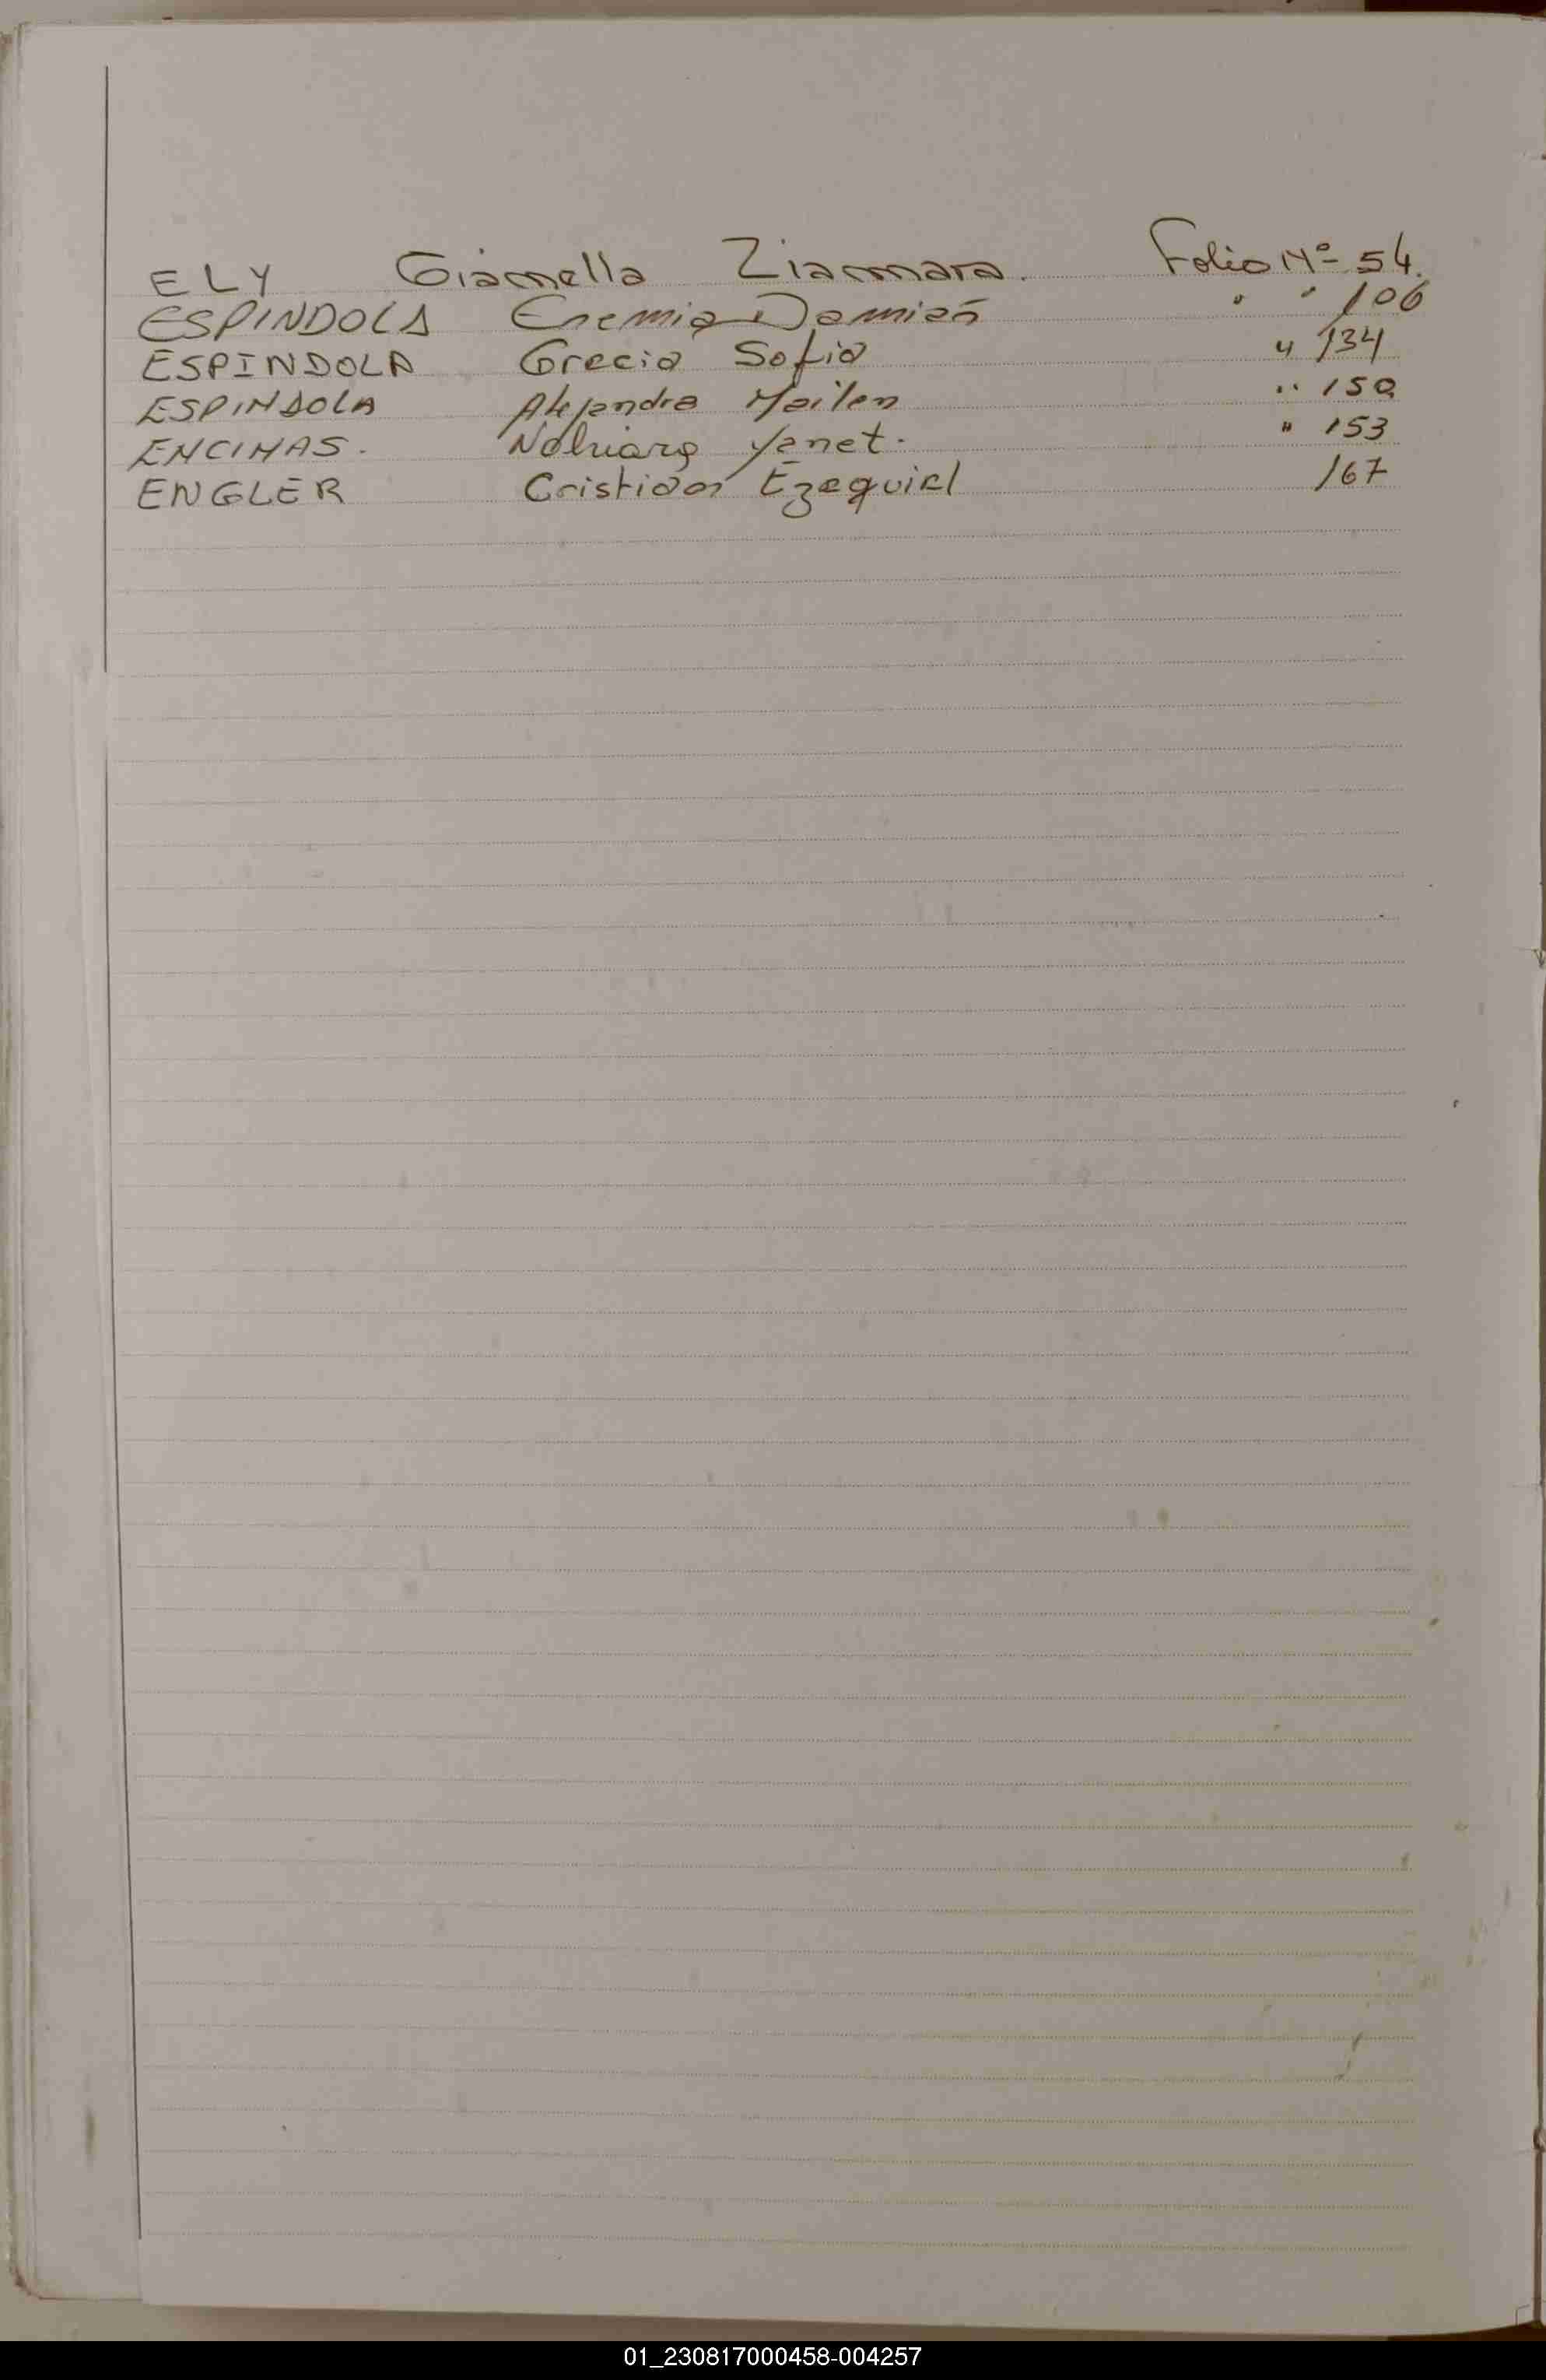 ELY Gianella Ziannara. Folio Nº 54.
ESPINDOLA Eremia Damián " " 106
ESPINDOLA Grecia Sofia " 134
ESPINDOLA Alejandra Mailen " 150
ENCINAS. Yanet. " 153
ENGLER Cristian Ezequiel 167
01_230817000458-004257